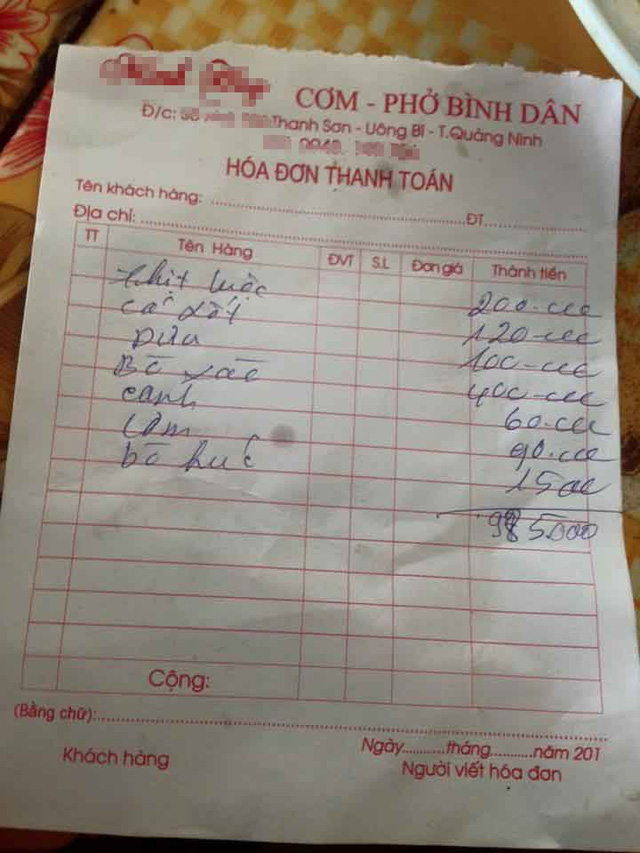 CƠM - PHỞ BÌNH DÂN
Đ/c: 58 Thanh Sơn - Uông Bí - T.Quảng Ninh
HÓA ĐƠN THANH TOÁN
Tên khách hàng: ĐT
Địa chỉ:
TT Tên Hàng ĐVT S.L Đơn giá Thành tiền
thịt luộc 200.000
cá sốt 120.000
Dưa 100.000
Bò xào 400.000
canh 60.000
Cơm 90.000
bò húc 15000
985000
Cộng:
(Bằng chữ):
Ngày tháng năm 201
Khách hàng Người viết hóa đơn